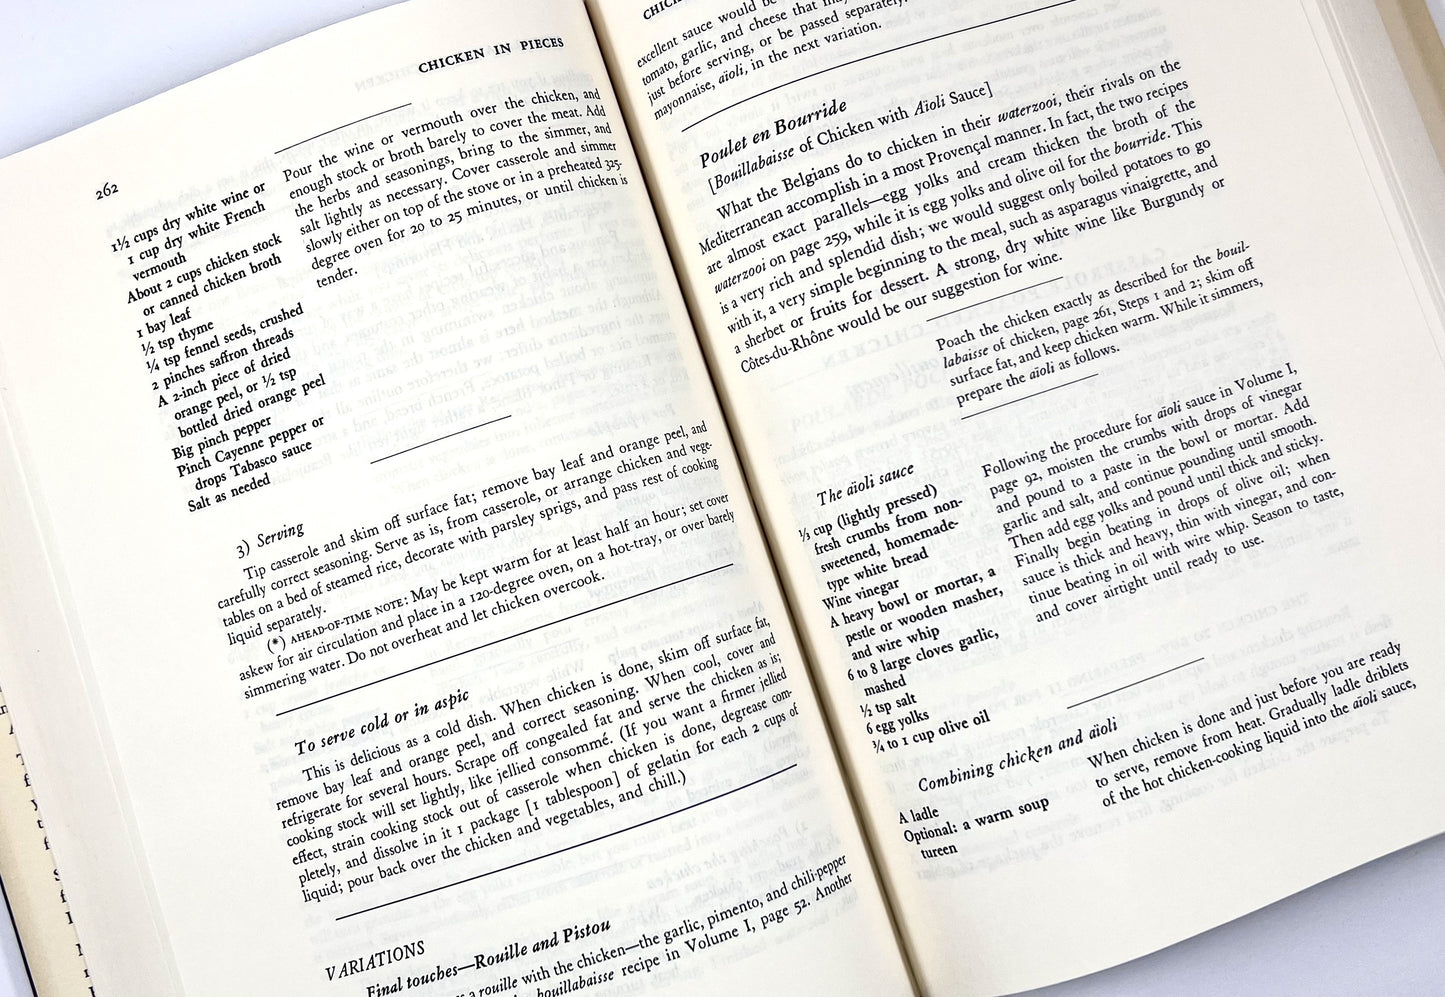 262
CHICKEN IN PIECES
1½ cups dry white wine or
1 cup dry white French
vermouth
About 2 cups chicken stock
or canned chicken broth
1 bay leaf
½ tsp thyme
¼ tsp fennel seeds, crushed
2 pinches saffron threads
A 2-inch piece of dried
orange peel, or ½ tsp
bottled dried orange peel
Big pinch pepper
Pinch Cayenne pepper or
drops Tabasco sauce
Salt as needed
Pour the wine or vermouth over the chicken, and
enough stock or broth barely to cover the meat. Add
the herbs and seasonings, bring to the simmer, and
salt lightly as necessary. Cover casserole and simmer
slowly either on top of the stove or in a preheated 325-
degree oven for 20 to 25 minutes, or until chicken is
tender.
3) Serving
Tip casserole and skim off surface fat; remove bay leaf and orange peel, and
carefully correct seasoning. Serve as is, from casserole, or arrange chicken and vege-
tables on a bed of steamed rice, decorate with parsley sprigs, and pass rest of cooking
liquid separately.
(*) AHEAD-OF-TIME NOTE: May be kept warm for at least half an hour; set cover
askew for air circulation and place in a 120-degree oven, on a hot-tray, or over barely
simmering water. Do not overheat and let chicken overcook.
To serve cold or in aspic
This is delicious as a cold dish. When chicken is done, skim off surface fat,
remove bay leaf and orange peel, and correct seasoning. When cool, cover and
refrigerate for several hours. Scrape off congealed fat and serve the chicken as is;
cooking stock will set lightly, like jellied consommé. (If you want a firmer jellied
effect, strain cooking stock out of casserole when chicken is done, degrease com-
pletely, and dissolve in it 1 package [1 tablespoon] of gelatin for each 2 cups of
liquid; pour back over the chicken and vegetables, and chill.)
VARIATIONS
Final touches—Rouille and Pistou
a rouille with the chicken—the garlic, pimento, and chili-pepper
bouillabaisse recipe in Volume I, page 52. Another
excellent sauce would be
tomato, garlic, and cheese that
just before serving, or be passed separately.
mayonnaise, aïoli, in the next variation.
Poulet en Bourride
[Bouillabaisse of Chicken with Aïoli Sauce]
What the Belgians do to chicken in their waterzooi, their rivals on the
Mediterranean accomplish in a most Provençal manner. In fact, the two recipes
are almost exact parallels—egg yolks and cream thicken the broth of the
waterzooi on page 259, while it is egg yolks and olive oil for the bourride. This
is a very rich and splendid dish; we would suggest only boiled potatoes to go
with it, a very simple beginning to the meal, such as asparagus vinaigrette, and
a sherbet or fruits for dessert. A strong, dry white wine like Burgundy or
Côtes-du-Rhône would be our suggestion for wine.
Poach the chicken exactly as described for the bouil-
labaisse of chicken, page 261, Steps 1 and 2; skim off
surface fat, and keep chicken warm. While it simmers,
prepare the aïoli as follows.
The aïoli sauce
⅓ cup (lightly pressed)
fresh crumbs from non-
sweetened, homemade-
type white bread
Wine vinegar
A heavy bowl or mortar, a
pestle or wooden masher,
and wire whip
6 to 8 large cloves garlic,
mashed
½ tsp salt
6 egg yolks
¾ to 1 cup olive oil
Following the procedure for aïoli sauce in Volume I,
page 92, moisten the crumbs with drops of vinegar
and pound to a paste in the bowl or mortar. Add
garlic and salt, and continue pounding until smooth.
Then add egg yolks and pound until thick and sticky.
Finally begin beating in drops of olive oil; when
sauce is thick and heavy, thin with vinegar, and con-
tinue beating in oil with wire whip. Season to taste,
and cover airtight until ready to use.
Combining chicken and aïoli
A ladle
Optional: a warm soup
tureen
When chicken is done and just before you are ready
to serve, remove from heat. Gradually ladle driblets
of the hot chicken-cooking liquid into the aïoli sauce,